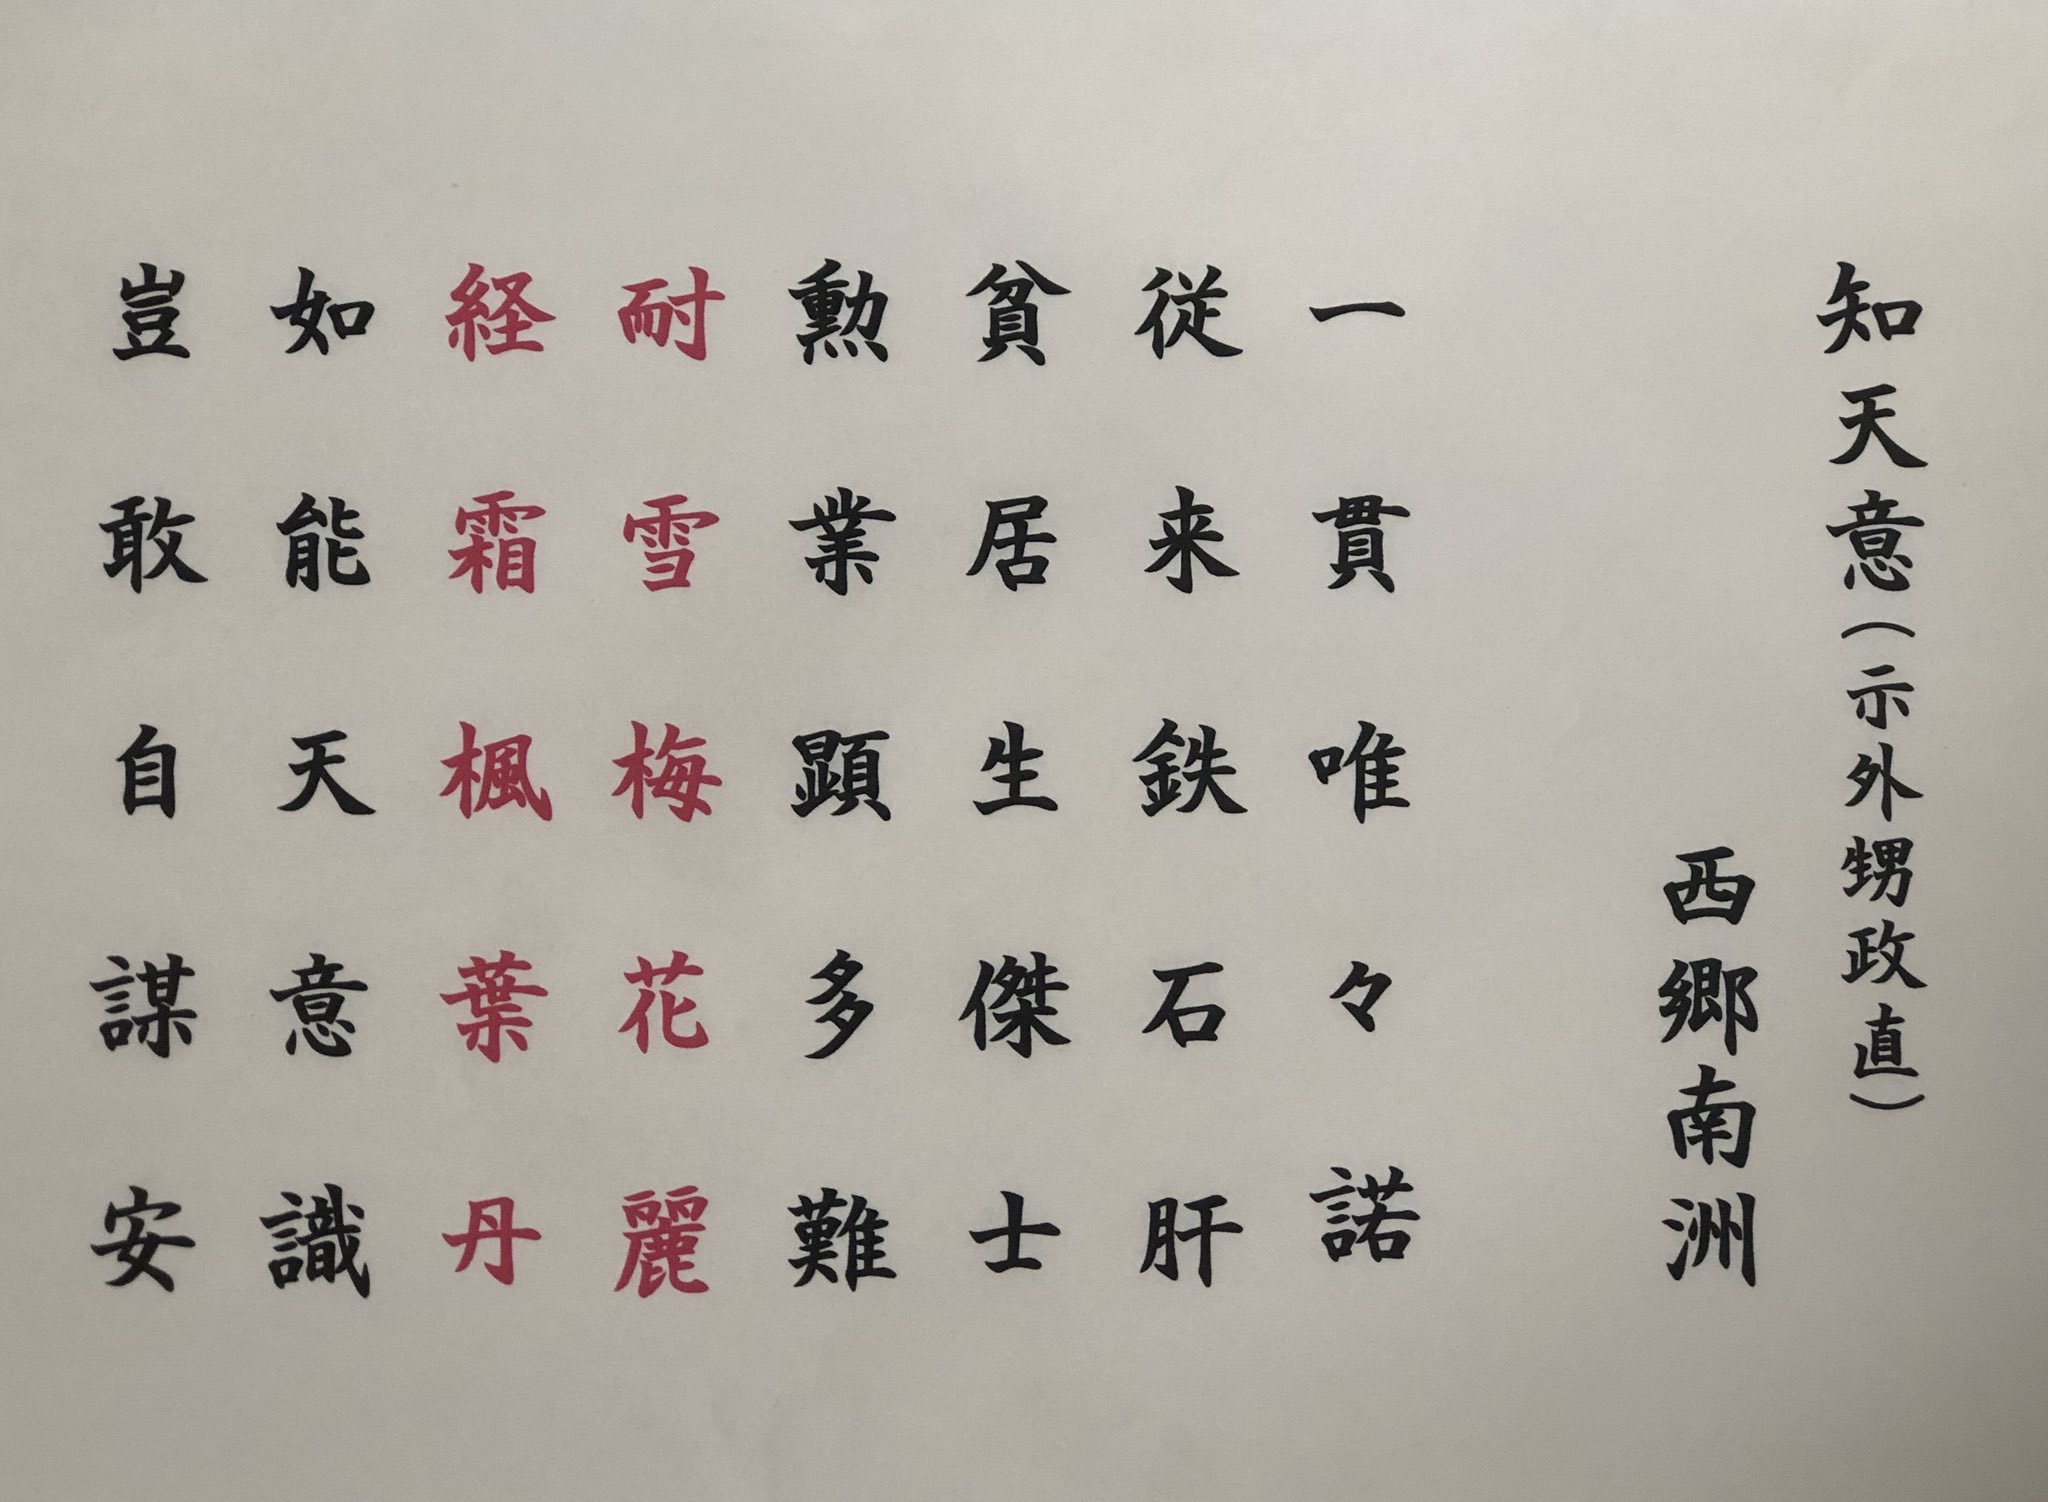 知天意（示外甥政直）
西郷南洲
一貫唯々諾
従来鉄石肝
貧居生傑士
勲業顕多難
耐雪梅花麗
経霜楓葉丹
如能天意識
豈敢自謀安